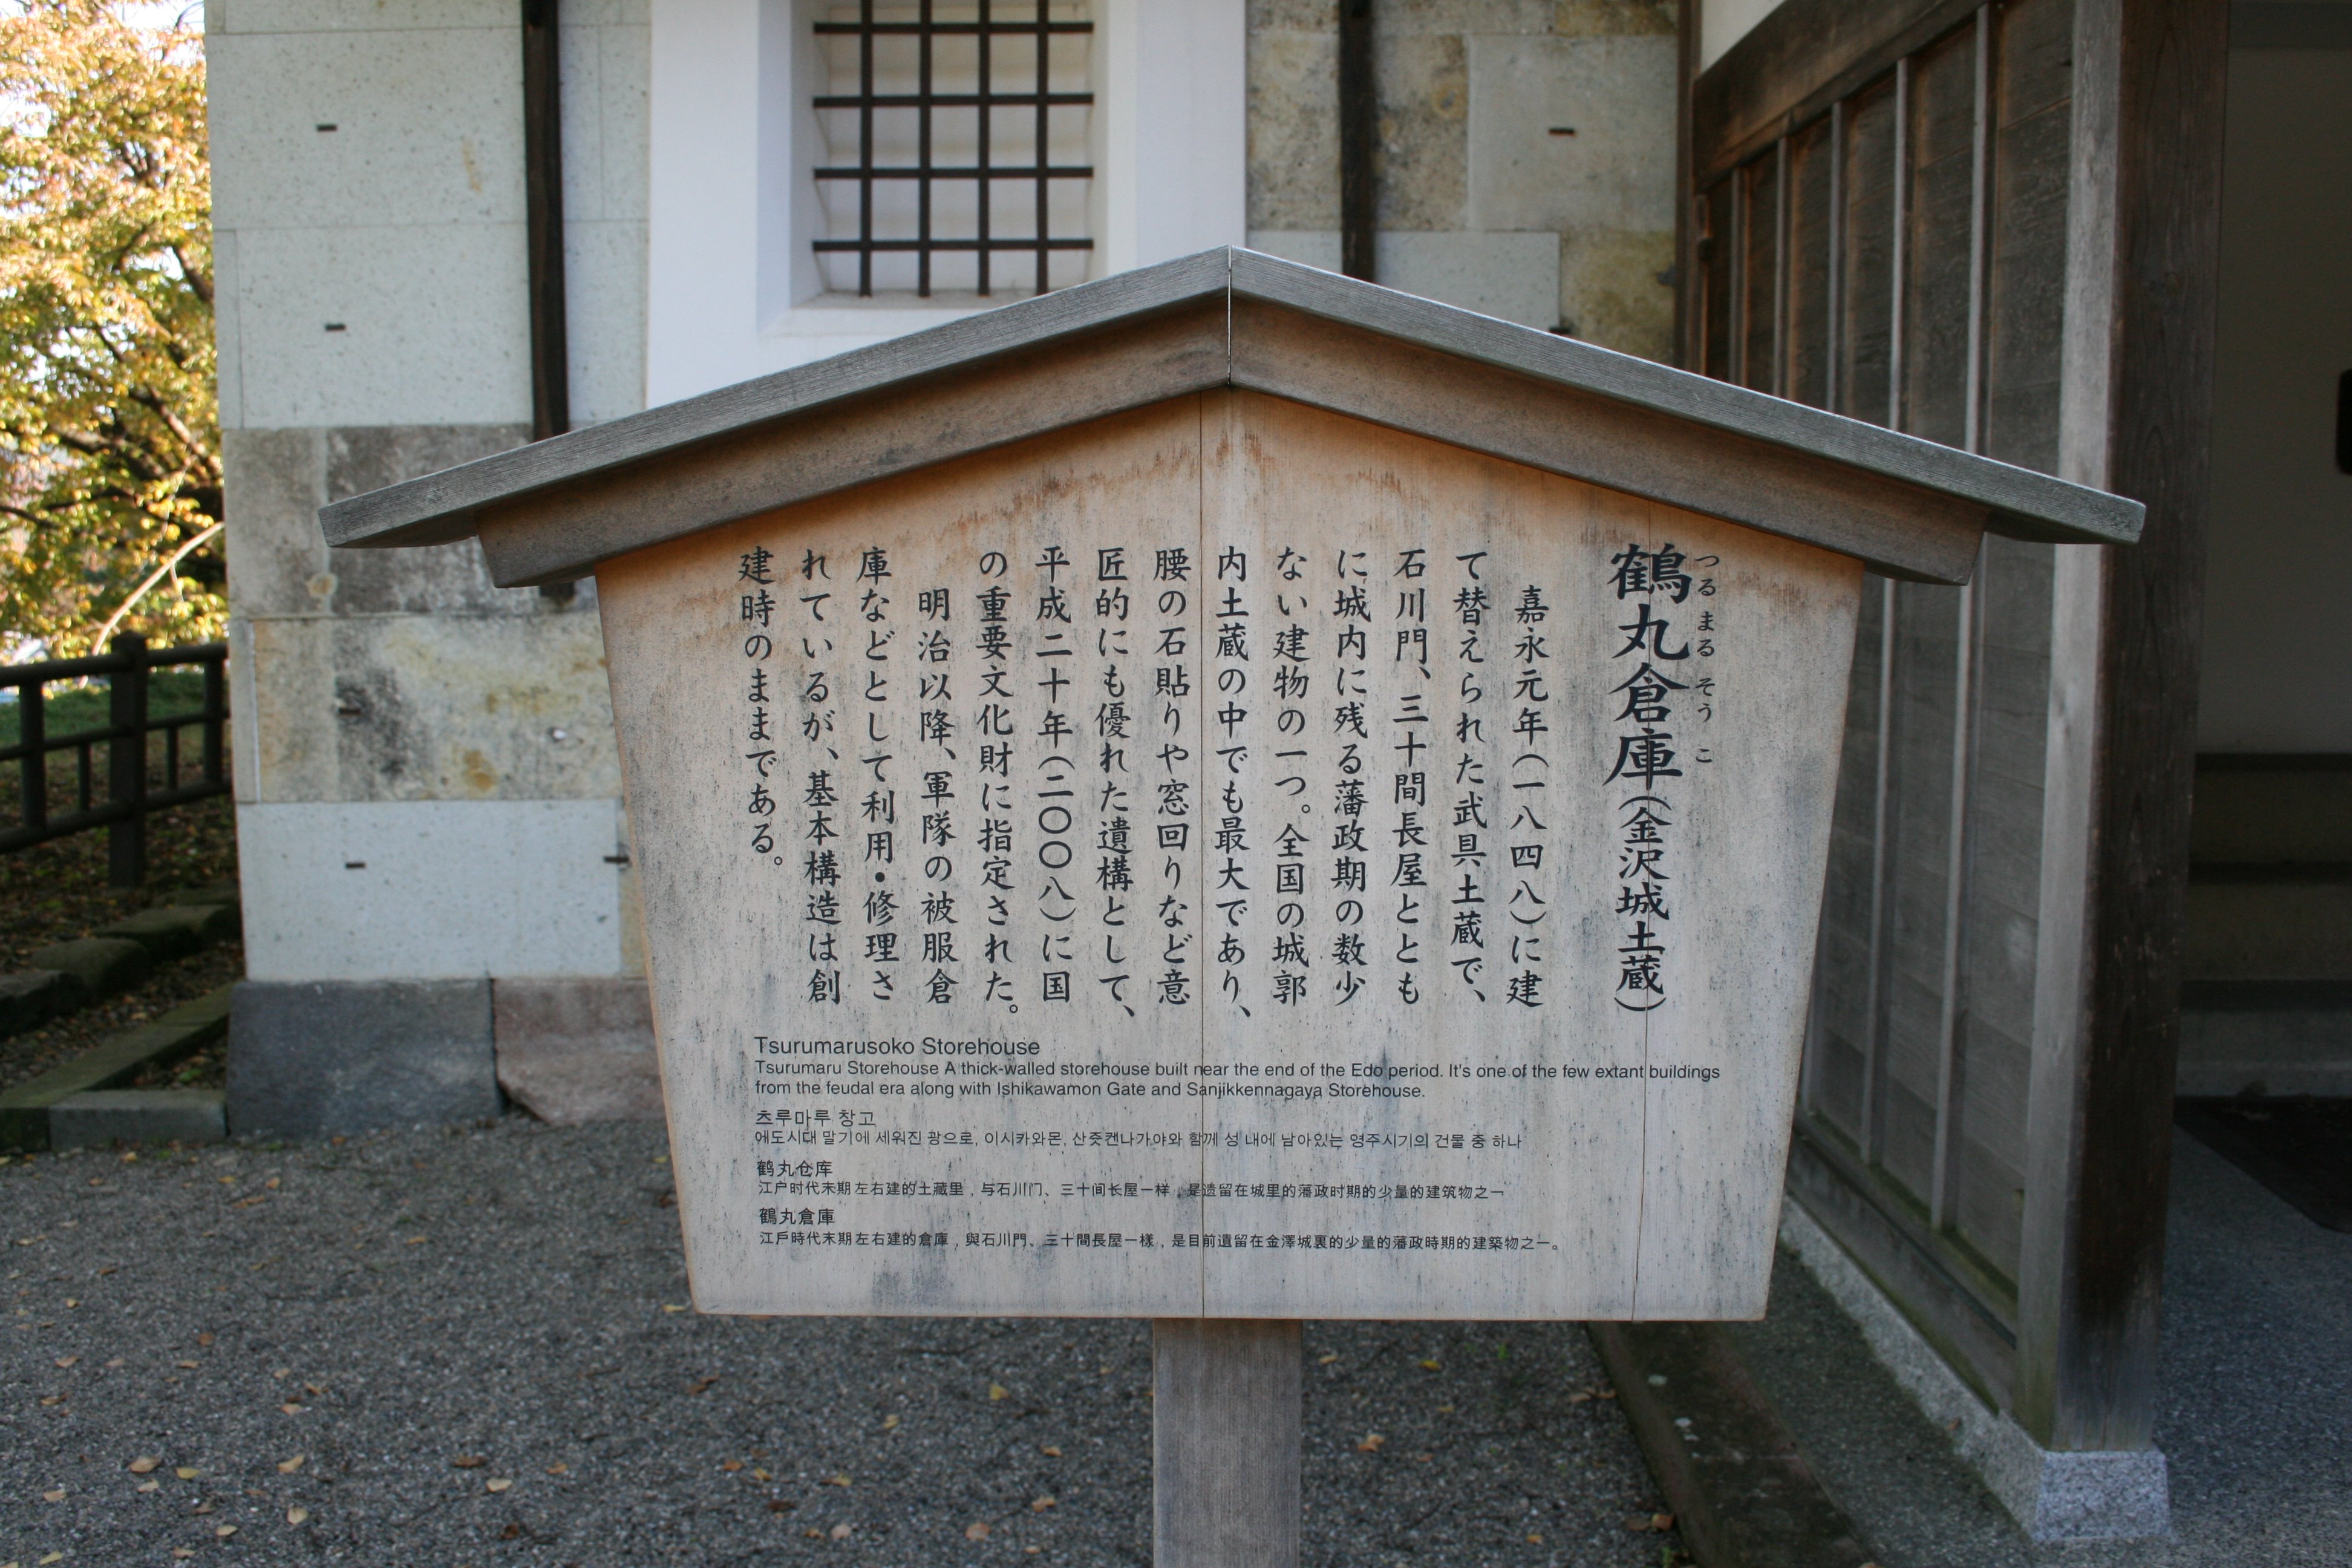 鶴丸倉庫(金沢城土蔵)
つるまるそうこ
嘉永元年(一八四八)に建
て替えられた武具土蔵で、
石川門、三十間長屋ととも
に城内に残る藩政期の数少
ない建物の一つ。全国の城郭
内土蔵の中でも最大であり、
腰の石貼りや窓回りなど意
匠的にも優れた遺構として、
平成二十年(二〇〇八)に国
の重要文化財に指定された。
明治以降、軍隊の被服倉
庫などとして利用・修理さ
れているが、基本構造は創
建時のままである。
Tsurumarusoko Storehouse
Tsurumaru Storehouse A thick-walled storehouse built near the end of the Edo period. It's one of the few extant buildings
from the feudal era along with Ishikawamon Gate and Sanjikkennagaya Storehouse.
츠루마루 창고
에도시대 말기에 세워진 광으로, 이시카와몬, 산줏켄나가야와 함께 성 내에 남아있는 영주시기의 건물 중 하나
鹤丸仓库
江户时代末期左右建的土藏里，与石川门、三十间长屋一样，是遗留在城里的藩政时期的少量的建筑物之一
鶴丸倉庫
江戶時代末期左右建的倉庫，與石川門、三十間長屋一樣，是目前遺留在金澤城裏的少量的藩政時期的建築物之一。